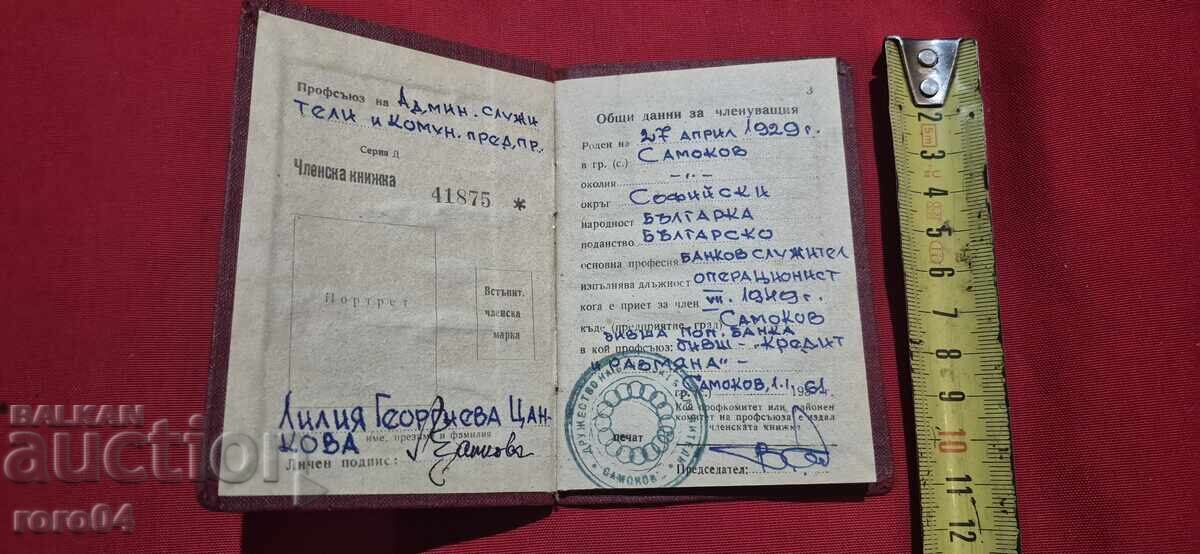 Профсъюз на Админ. служи
тели и комун. предпр.
Серия Д
Членска книжка
41875 *
Портрет
Встъпит.
членска
марка
Лилия Георгиева Цан-
кова
име, презиме и фамилия
Личен подпис: Цанкова
3
Общи данни за членуващия
Роден на 27 април 1929 г.
в гр. (с.) Самоков
околия -"-
окръг Софийски
народност Българка
поданство Българско
основна професия Банков служител
изпълнява длъжност операционист
кога е приет за член VII. 1949 г.
къде (предприятие, град) Самоков
бивша Поп. банка
в кой профсъюз: бивш - "Кредит
и размяна" -
гр. Самоков, 1.I 1961
Кой профкомитет или районен
комитет на профсъюза е издал
членската книжка
ДРУЖЕСТВО НА
САМОКОВ
печат
Председател:
BALKAN
auction
roro04
5m
2
3
4
5
6
7
8
9
10
11
12